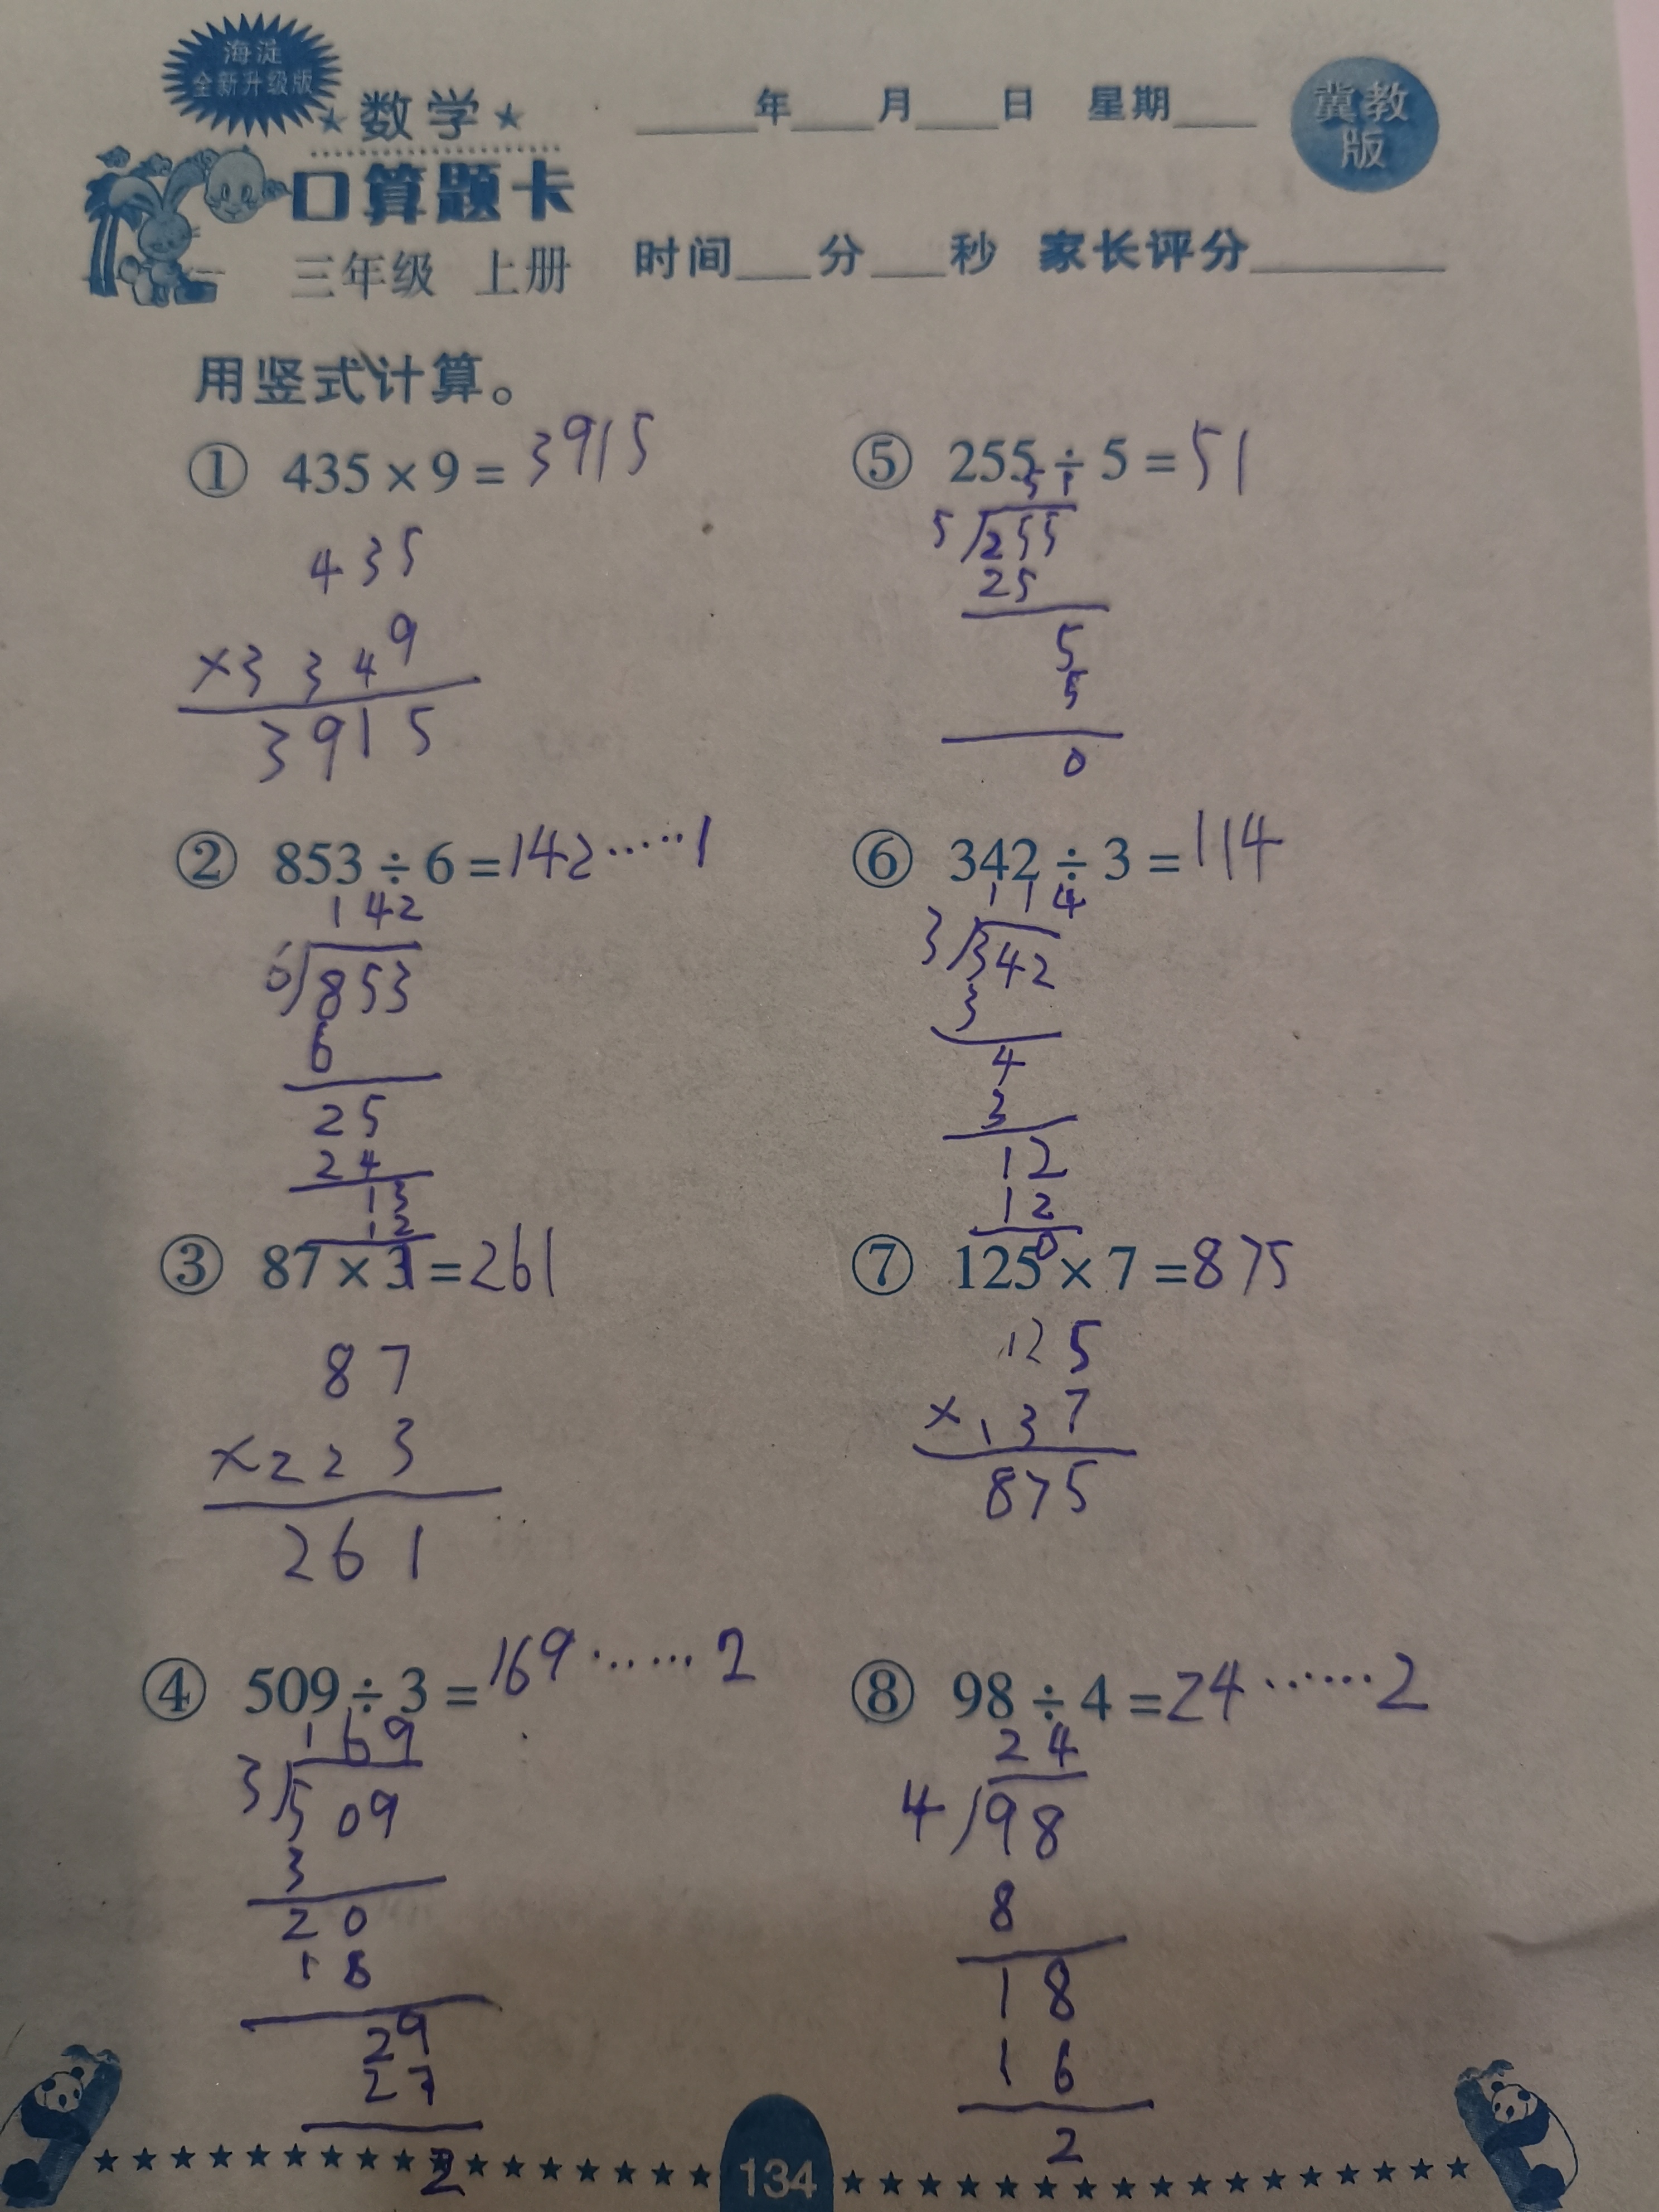 海淀
全新升级版
数学
口算题卡
三年级 上册
年 月 日 星期
时间 分 秒 家长评分
冀教
版
用竖式计算。
① 435×9=3915
435
×3349
3915
② 853÷6=142……1
142
6 853
6
25
24
13
12
1
③ 87×3=261
87
×223
261
④ 509÷3=169……2
169
3 509
3
20
18
29
27
2
⑤ 255÷5=51
51
5 255
25
5
5
0
⑥ 342÷3=114
114
3 342
3
4
3
12
12
0
⑦ 125×7=875
125
×137
875
⑧ 98÷4=24……2
24
4 98
8
18
16
2
134